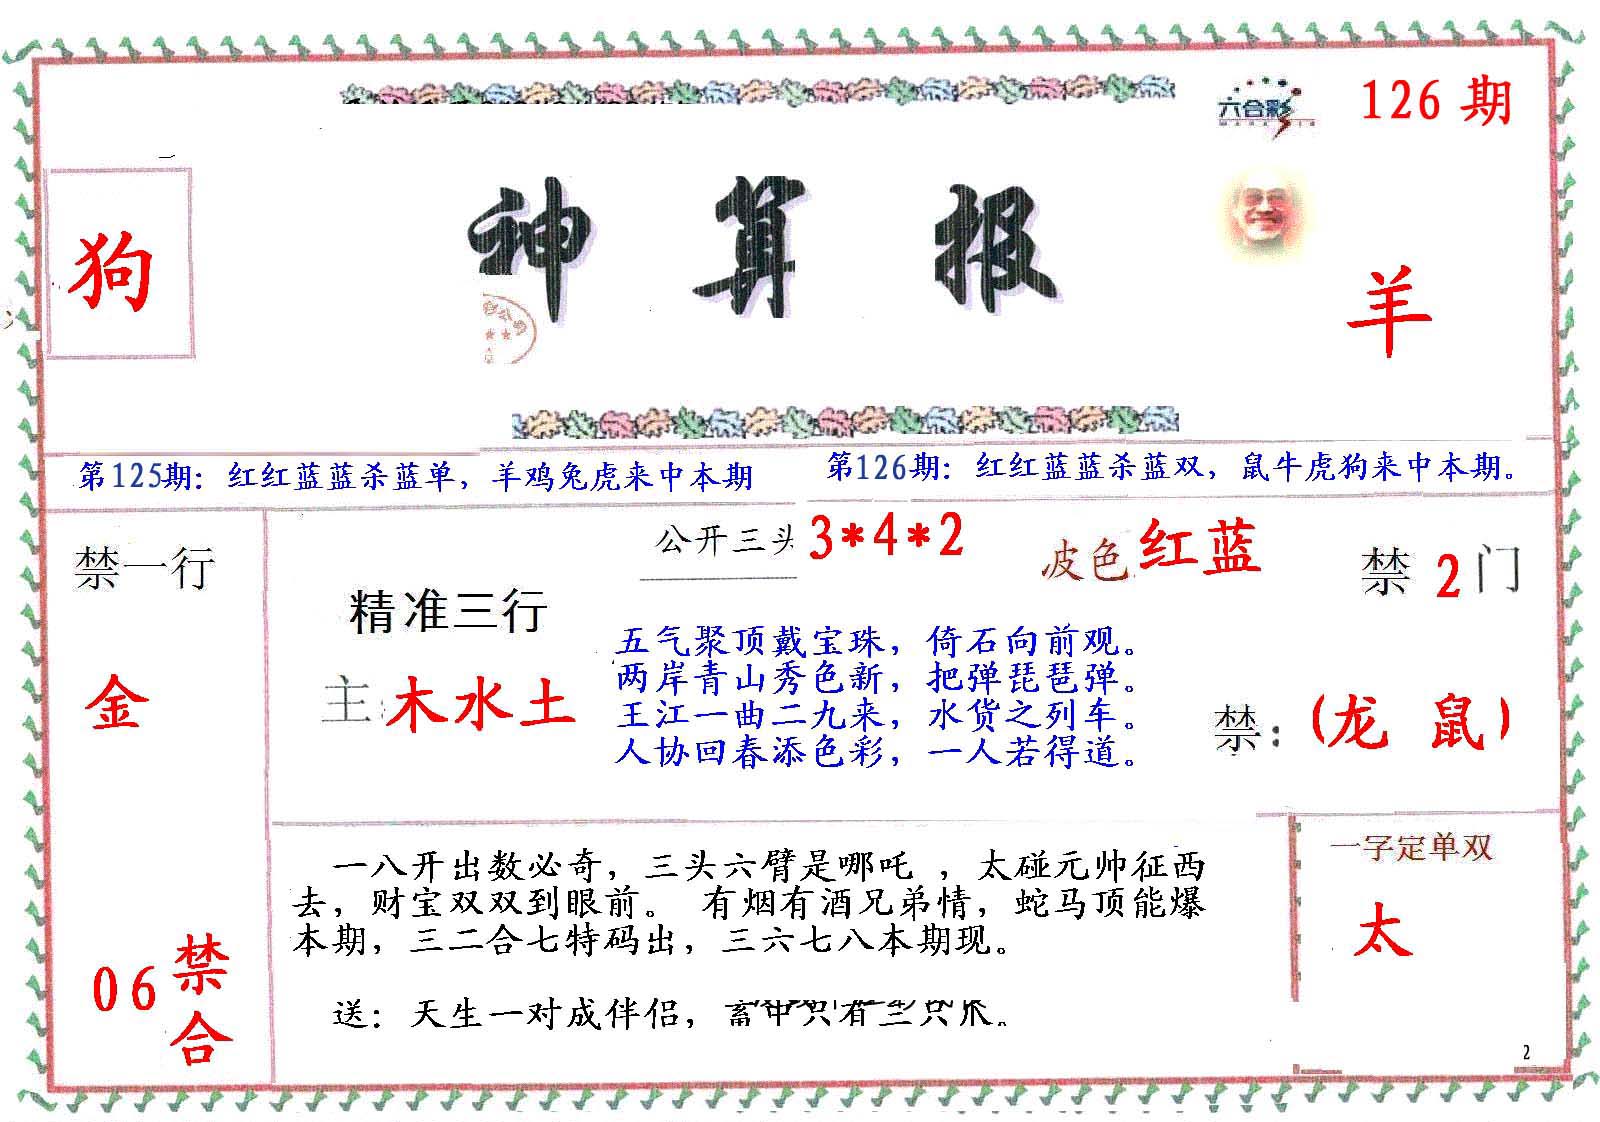 六合彩
126 期
狗
神算报
羊
第125期：红红蓝蓝杀蓝单，羊鸡兔虎来中本期
第126期：红红蓝蓝杀蓝双，鼠牛虎狗来中本期。
禁一行
金
06
禁
合
公开三头
3*4*2
皮色 红蓝
禁 2 门
精准三行
主：木水土
五气聚顶戴宝珠，倚石向前观。
两岸青山秀色新，把弹琵琶弹。
王江一曲二九来，水货之列车。
人协回春添色彩，一人若得道。
禁：(龙 鼠)
一八开出数必奇，三头六臂是哪吒 ，太碰元帅征西
去，财宝双双到眼前。 有烟有酒兄弟情，蛇马顶能爆
本期，三二合七特码出，三六七八本期现。
送：天生一对成伴侣，畜中只有三只爪。
一字定单双
太
2